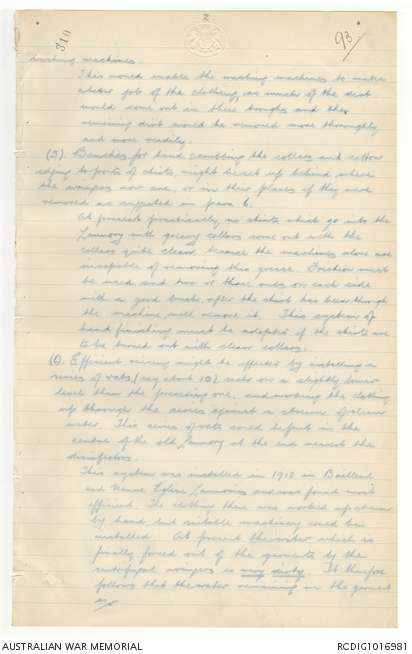 2
310
93/
washing machines.
This would enable the washing machines to make
a better job of the clothing, as much of the dirt
would come out in these troughs and the
remaining dirt would be removed more thoroughly
and more readily.
(5). Benches for hand scrubbing the collars and cotton
edging to fronts of shirts, might be set up behind where
the wringers now are, or in their places if they were
removed as suggested in para 6.
At present practically no shirts which go into the
Laundry with greasy collars come out with the
collars quite clean, because the machines alone are
incapable of removing this grease. Friction must
be used and two or three rubs on each side
with a good brush, after the shirt has been through
the machine, will remove it. This system of
hand finishing must be adopted if the shirts are
to be turned out with clean collars.
(6) Efficient rinsing might be effected by installing a
series of vats, (say about 10), each on a slightly lower
level than the preceding one, and working the clothing
up through the series against a stream of clean
water. This series of vats could be put in the
centre of the old Laundry at the end nearest the
disinfectors.
This system was installed in 1918 in Bailleul
and Neuve Eglise Laundries and was found most
efficient. The clothing there was worked up stream
by hand, but suitable machinery could be
installed. At present the water which is
finally forced out of the garments by the
centrifugal wringers is very dirty. It therefore
follows that the water remaining in the garment
is/
AUSTRALIAN WAR MEMORIAL
RCDIG1016981